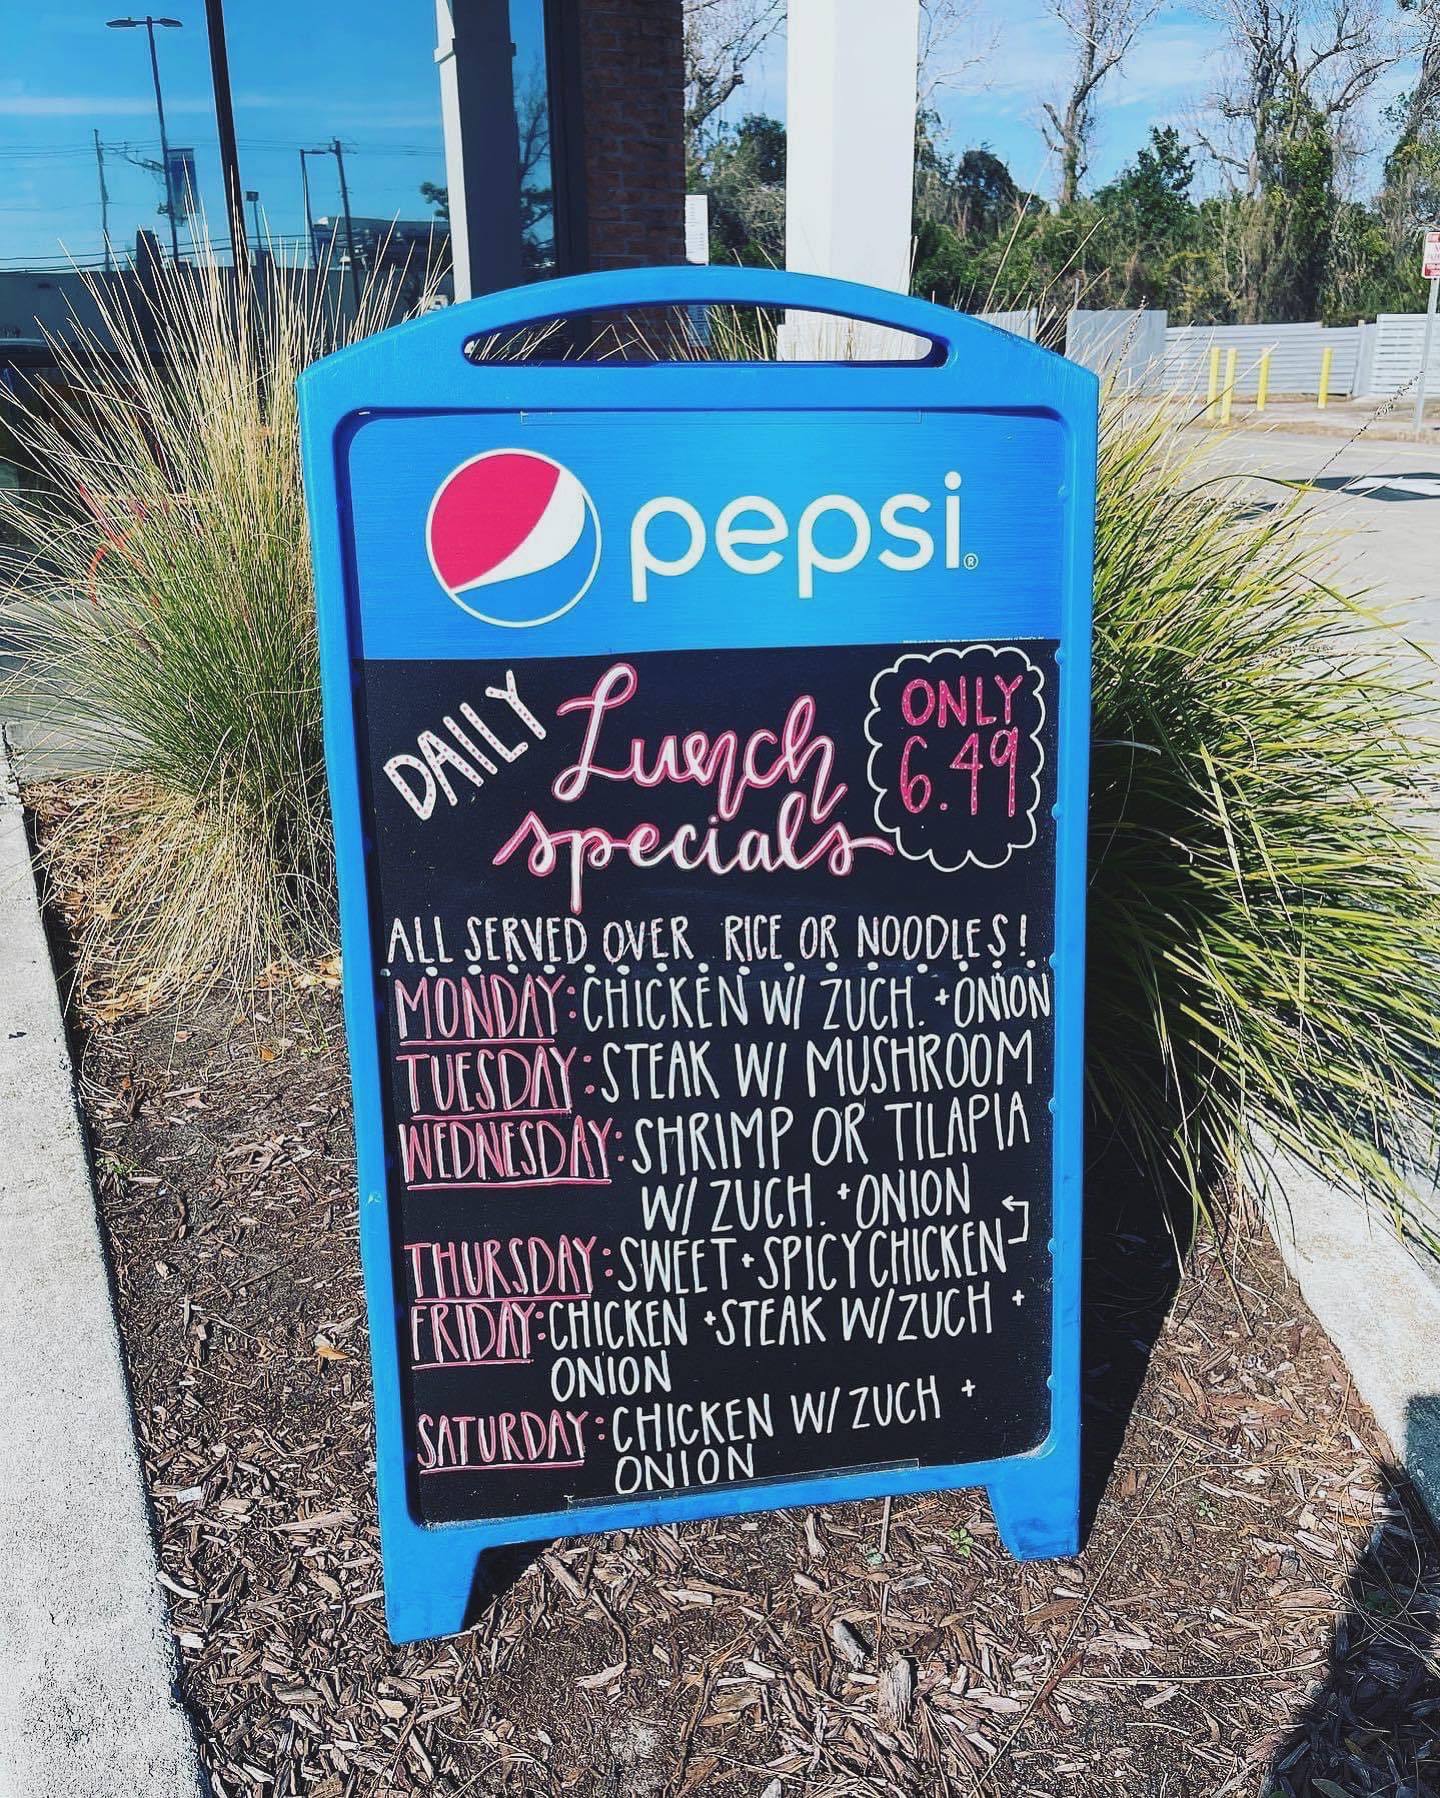 pepsi®
DAILY Lunch specials
ONLY
6.49
ALL SERVED OVER RICE OR NOODLES!
MONDAY: CHICKEN W/ ZUCH. + ONION
TUESDAY: STEAK W/ MUSHROOM
WEDNESDAY: SHRIMP OR TILAPIA
W/ ZUCH. + ONION
THURSDAY: SWEET + SPICY CHICKEN
FRIDAY: CHICKEN + STEAK W/ ZUCH +
ONION
SATURDAY: CHICKEN W/ ZUCH +
ONION